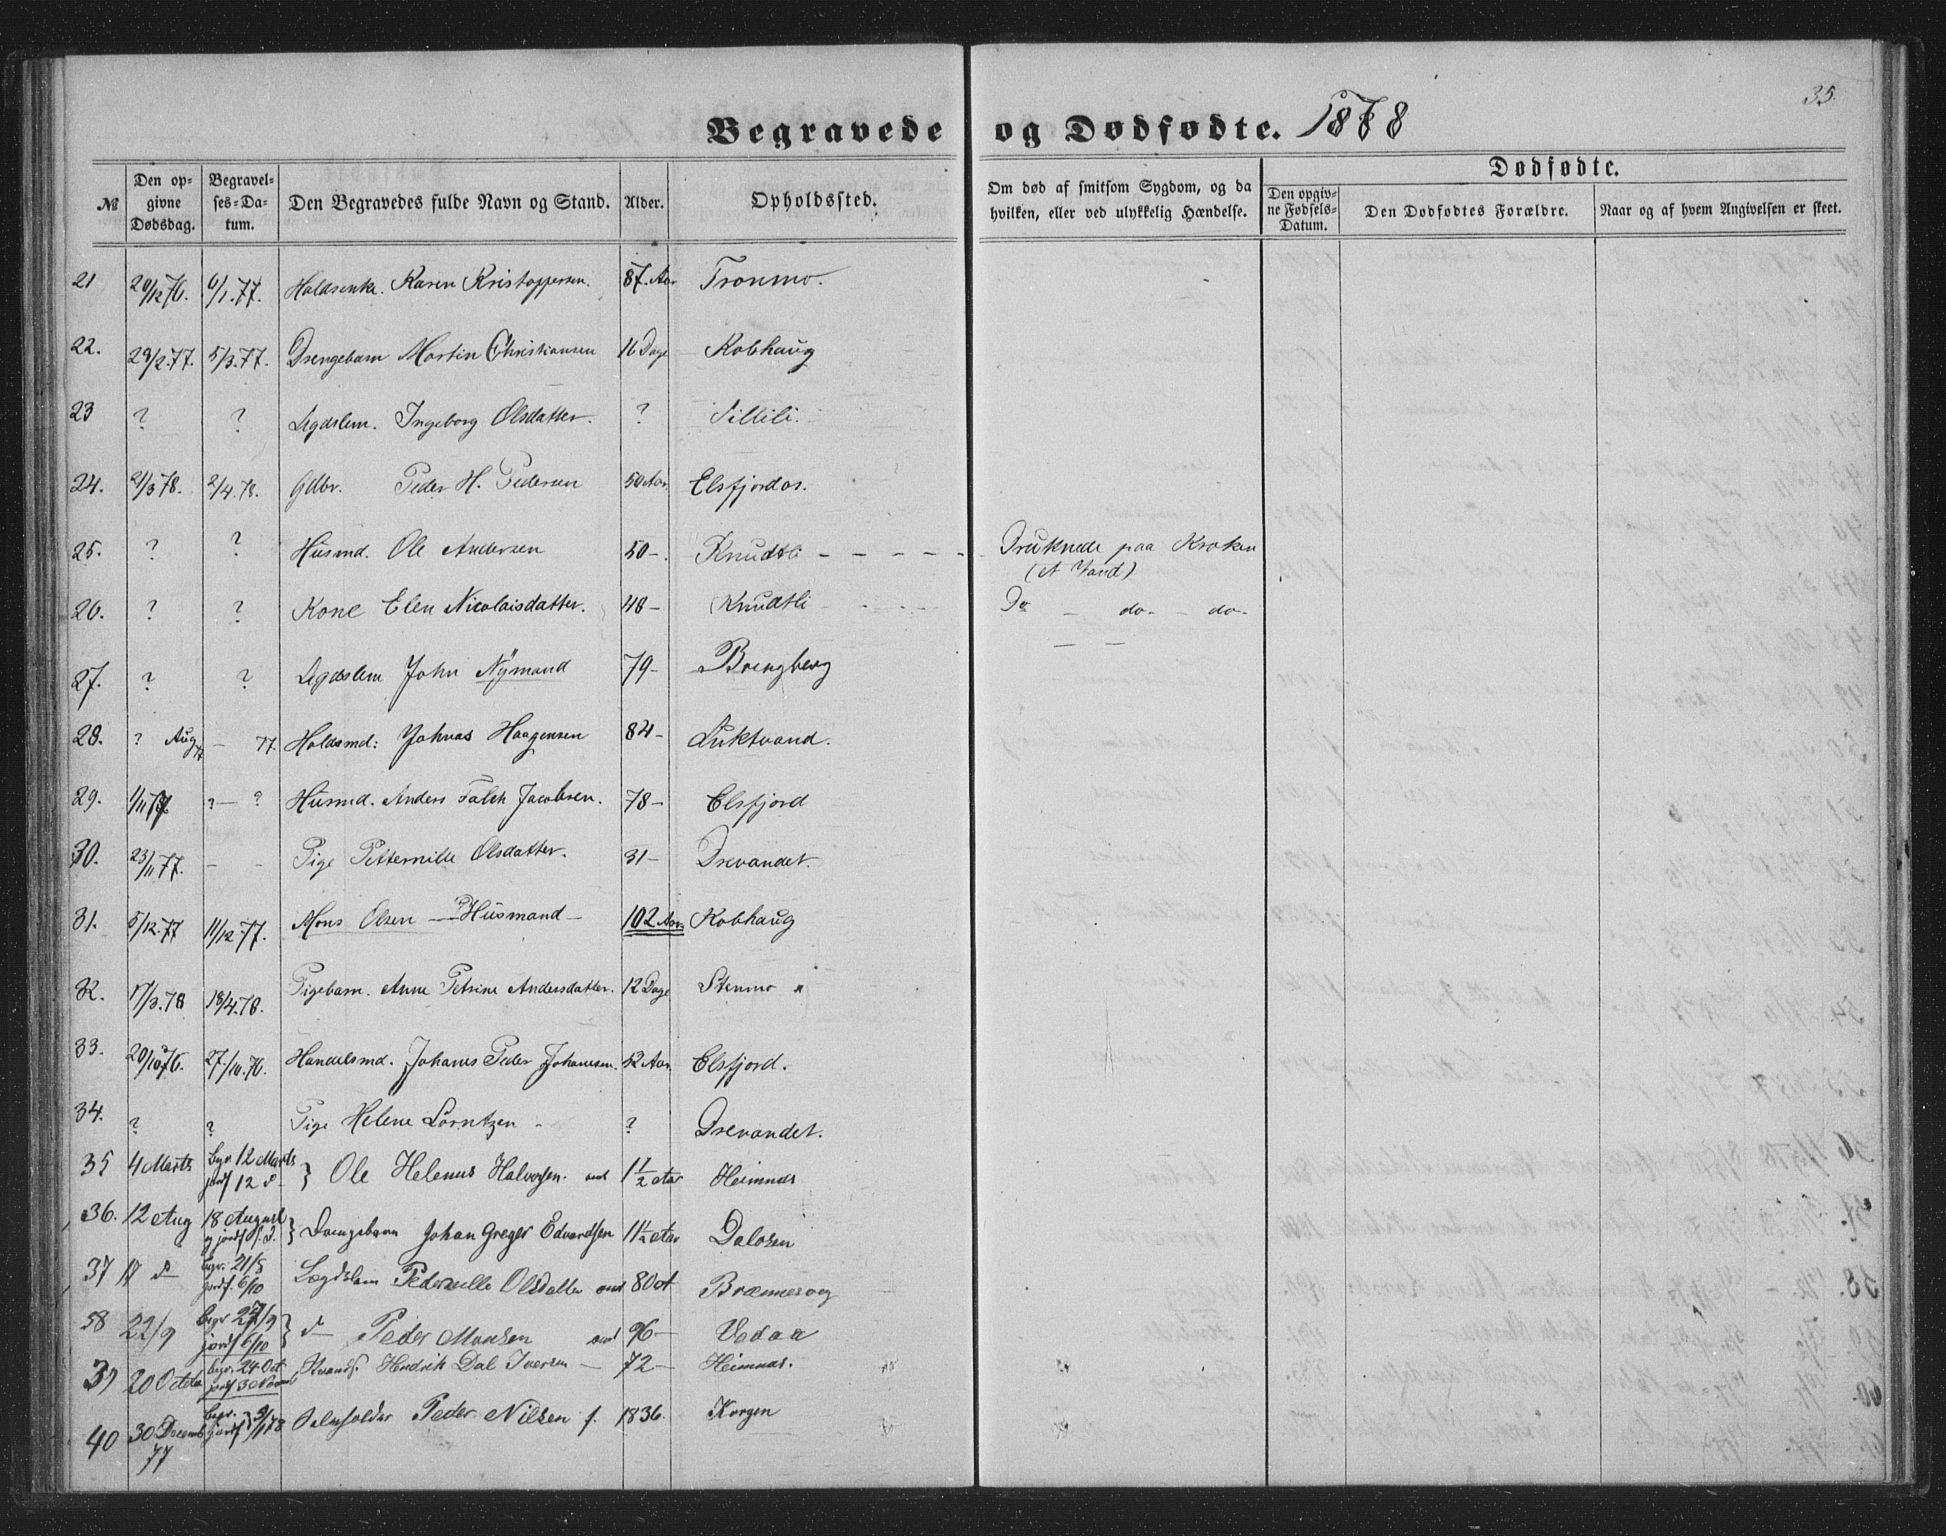 35.
Begravede og Dødfødte. 1878
Dødfødte.
№ Den op- givne Dødsdag. Begravel- ses-Da- tum. Den Begravedes fulde Navn og Stand. Alder. Opholdssted. Om død af smitsom Sygdom, og da hvilken, eller ved ulykkelig Hændelse. Den opgiv- ne Fødsels- Datum. Den Dødfødtes Forældre. Naar og af hvem Angivelsen er skeet.
21 20/12 76. 6/1. 77. Holdsenke. Karen Kristophersen. 87. Aar Tronmo.
22. 23/2. 77. 5/3. 77. Drengebarn Martin Christiansen 16 Dage Kobhaug
23 ? ? Lægdslem. Ingeborg Olsdatter. ? Sillili.
24. 21/3 78. 2/4. 78. Gdbr. Peder H. Pedersen 50 Aar. Elsfjordos.
25. ? ? Husmd. Ole Andersen 50 -. Knudtli - - - - - Druknede paa Kroken
(et Vand)
26. ? ? Kone Elen Nicolaisdatter. 48 - Knudtli - - - - Do - do - do -
27. ? ? Lægdslem John Nÿmand 79 - Brengberg
28. ? Aug 77 - 77. Holdsmd: Johnas Haagensen 84 - Luktvand.
29. 1/11 77. ? - ? Husmd. Anders Falch Jacobsen. 78 - Elsfjord
30. 23/11 77. - - Pige Petternille Olsdatter. 31 - Drevandet.
31. 5/12. 77 11/12. 77. Mons Olsen - Husmand - 102 Aar Kobhaug
32. 17/3. 78 18/4. 78. Pigebarn. Anne Petrine Andersdatter. 12 Dage Stenmo "
33. 20/10 76. 27/10. 76. Handelsmd. Johanes Peder Johanesen. 52 Aar Elsfjord.
34. ? ? Pige Helene Lorntzen - ? Drevandet.
35 4 Marts Begr 12 Marts jordf 12 d - } Ole Helenus Halvorsen. 1 1/2 Aar Heimnes
36. 12 Aug 18 August og jordf s. D. } Drengebarn Johan Greger Edvardsen 1 1/2 Aar Dalosen
37 17 d - Begr. 21/8 jordf. 6/10 Lægdslem Pedernille Olsdatter 80 Brennesvog
38 22/9 Begr 27/9 jordf 6/10 } d - Peder Monsen 96 - Vedaa
39 20 October Begr. 24 Oct jordf 3 Novemb Hendrik Dal Iversen - 72 - Heimnes.
40 30 Decemb 77 Begr. jordf } 9/1 78 Peder Nilsen f. 1836. Korgen